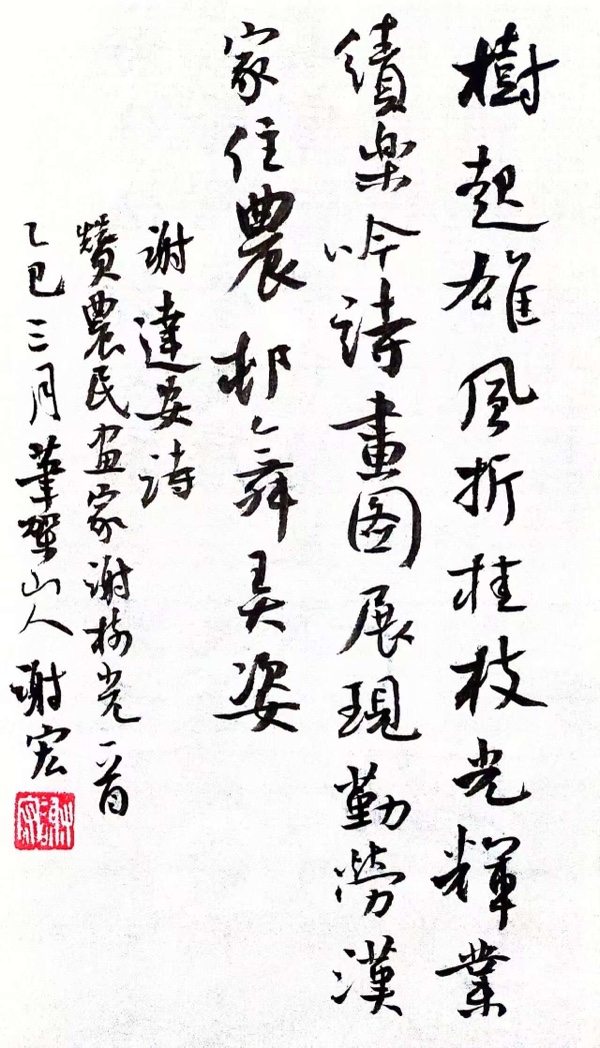 樹起雄風折桂枝光輝業
績樂吟詩畫图展現勤勞漢
家住農邨舞美姿
謝達安詩
贊農民画家謝樹光一首
乙巳三月筆架山人謝宏